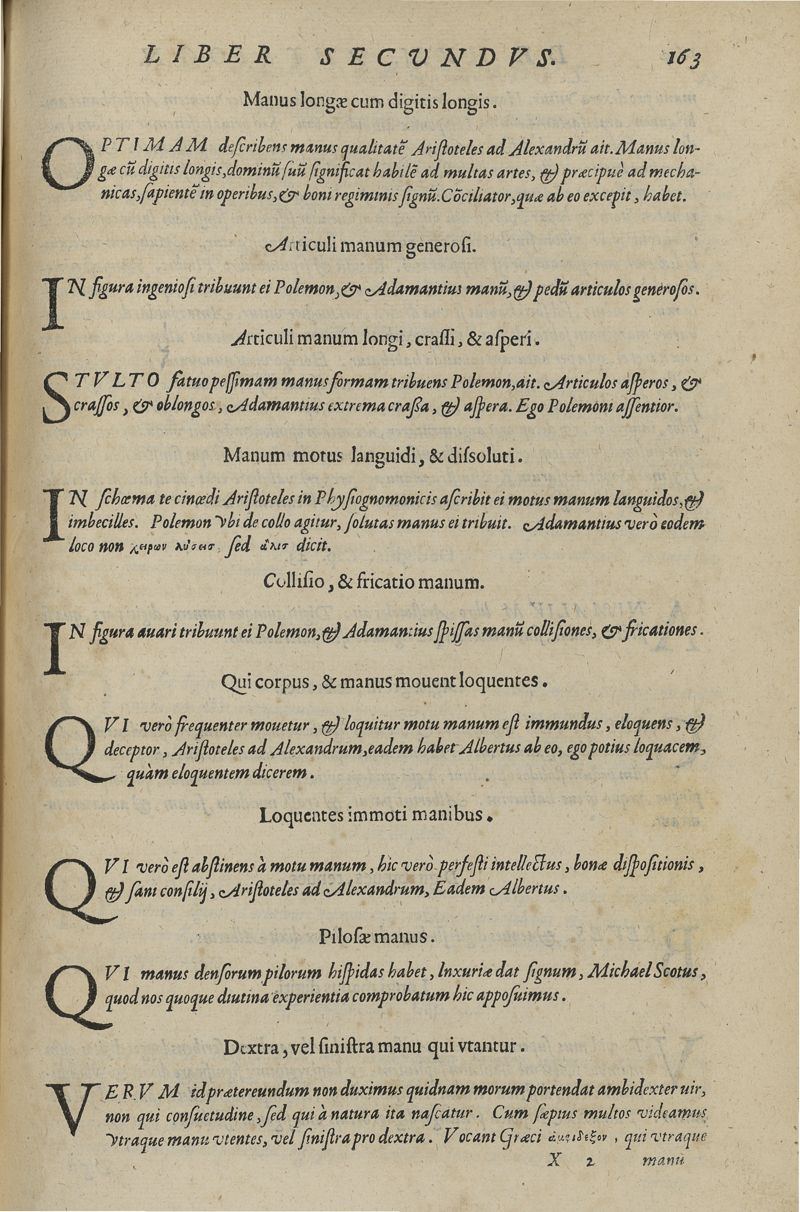 LIBER SECVNDVS. 163
Manus longæ cum digitis longis.
OPTIMAM deſcribens manus qualitatẽ Ariſtoteles ad Alexandrũ ait. Manus lon-
gæ cũ digitis longis, dominũ ſuũ ſignificat habilẽ ad multas artes, & præcipuè ad mecha-
nicas, ſapientẽ in operibus, & boni regiminis ſignũ. Cõciliator, quæ ab eo excepit, habet.
Articuli manum generoſi.
IN figura ingenioſi tribuunt ei Polemon, & Adamantius manũ, & pedũ articulos generoſos.
Articuli manum longi, craſſi, & aſperi.
STVLTO fatuo peſſimam manus formam tribuens Polemon, ait. Articulos aſperos, &
craſſos, & oblongos, Adamantius extrema craßa, & aſpera. Ego Polemoni aſſentior.
Manum motus languidi, & diſsoluti.
IN ſchœma te cinœdi Ariſtoteles in Phyſiognomonicis aſcribit ei motus manum languidos, &
imbecilles. Polemon vbi de collo agitur, ſolutas manus ei tribuit. Adamantius verò eodem
loco non χειρων λυσεισ, ſed dicit.
Colliſio, & fricatio manum.
IN figura auari tribuunt ei Polemon, & Adamantius ſpiſſas manũ colliſiones, & fricationes.
Qui corpus, & manus mouent loquentes.
QVI verò frequenter mouetur, & loquitur motu manum eſt immundus, eloquens, &
deceptor, Ariſtoteles ad Alexandrum, eadem habet Albertus ab eo, ego potius loquacem,
quàm eloquentem dicerem.
Loquentes immoti manibus.
QVI verò eſt abſtinens à motu manum, hic verò perfeſti intellectus, bonæ diſpoſitionis,
& ſani conſilij, Ariſtoteles ad Alexandrum, Eadem Albertus.
Piloſæ manus.
QVI manus denſorum pilorum hiſpidas habet, lnxuriæ dat ſignum, Michael Scotus,
quod nos quoque diutina experientia comprobatum hic appoſuimus.
Dextra, vel ſiniſtra manu qui vtantur.
VERVM id prætereundum non duximus quidnam morum portendat ambidexter uir,
non qui conſuetudine, ſed qui à natura ita naſcatur. Cum ſæpius multos videamus
vtraque manu vtentes, vel ſiniſtra pro dextra. Vocant Græci , qui vtraque
X 2 manu